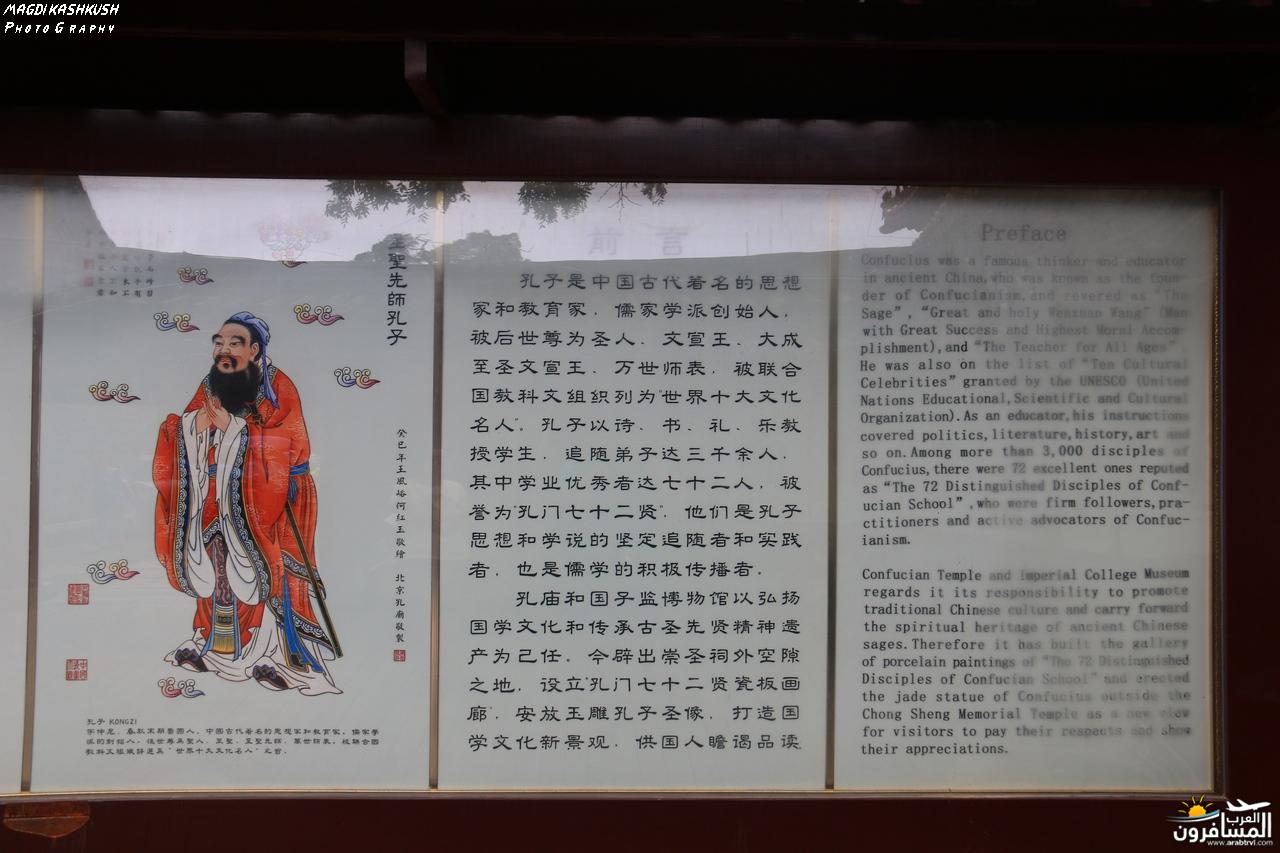 MAGDI KASHKUSH
PHOTOGRAPHY
至聖先師孔子
癸巳年王風塔何红玉敬繪 北京孔廟敬製
孔子 KONGZI
前言
孔子是中国古代著名的思想
家和教育家，儒家学派创始人，
被后世尊为圣人、文宣王、大成
至圣文宣王、万世师表，被联合
国教科文组织列为"世界十大文化
名人"。孔子以诗、书、礼、乐教
授学生，追随弟子达三千余人，
其中学业优秀者达七十二人，被
誉为"孔门七十二贤"，他们是孔子
思想和学说的坚定追随者和实践
者，也是儒学的积极传播者。
孔庙和国子监博物馆以弘扬
国学文化和传承古圣先贤精神遗
产为己任。今辟出崇圣祠外空隙
之地，设立"孔门七十二贤瓷板画
廊"，安放玉雕孔子圣像，打造国
学文化新景观，供国人瞻谒品读。
Preface
Confucius was a famous thinker and educator
in ancient China, who was known as the foun-
der of Confucianism, and revered as "The
Sage", "Great and holy Wenxuan Wang" (Man
with Great Success and Highest Moral Accom-
plishment), and "The Teacher for All Ages".
He was also on the list of "Ten Cultural
Celebrities" granted by the UNESCO (United
Nations Educational, Scientific and Cultural
Organization). As an educator, his instructions
covered politics, literature, history, art and
so on. Among more than 3,000 disciples of
Confucius, there were 72 excellent ones reputed
as "The 72 Distinguished Disciples of Conf-
ucian School", who were firm followers, pra-
ctitioners and active advocators of Confuc-
ianism.
Confucian Temple and Imperial College Museum
regards it its responsibility to promote
traditional Chinese culture and carry forward
the spiritual heritage of ancient Chinese
sages. Therefore it has built the gallery
of porcelain paintings of "The 72 Distinguished
Disciples of Confucian School" and erected
the jade statue of Confucius outside the
Chong Sheng Memorial Temple as a new view
for visitors to pay their respects and show
their appreciations.
العرب
المسافرون
www.arabtrvl.com